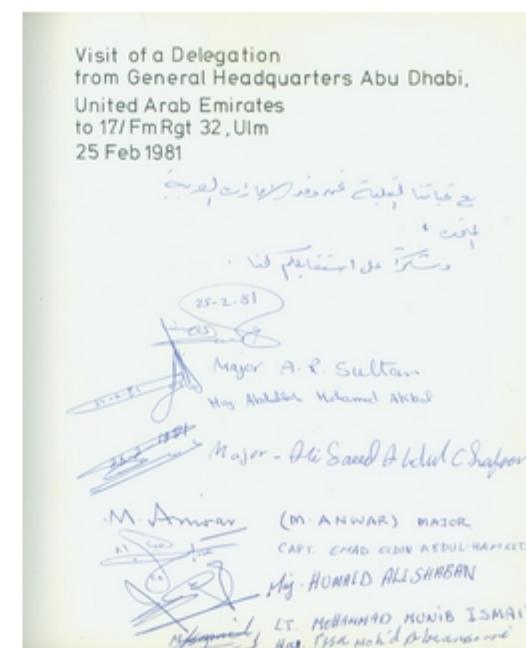 Visit of a Delegation
from General Headquarters Abu Dhabi,
United Arab Emirates
to 17/FmRgt 32, Ulm
25 Feb 1981
مع تحياتنا القلبية نحن وفد الإمارات العربية
المتحدة
وشكراً على استقبالكم لنا.
25-2-81
Major A.R. Sultan
Maj. Abdullah Mohamed
Major - Ali Saeed Abdul Ghafoor
M. Anwar (M. ANWAR) MAJOR
CAPT. EMAD ELDIN ABDUL-HAMEED
Maj. HUMAID ALI SHABAN
LT. MOHAMMAD MUNIB ISMAI
Maj. Issa Moh'd